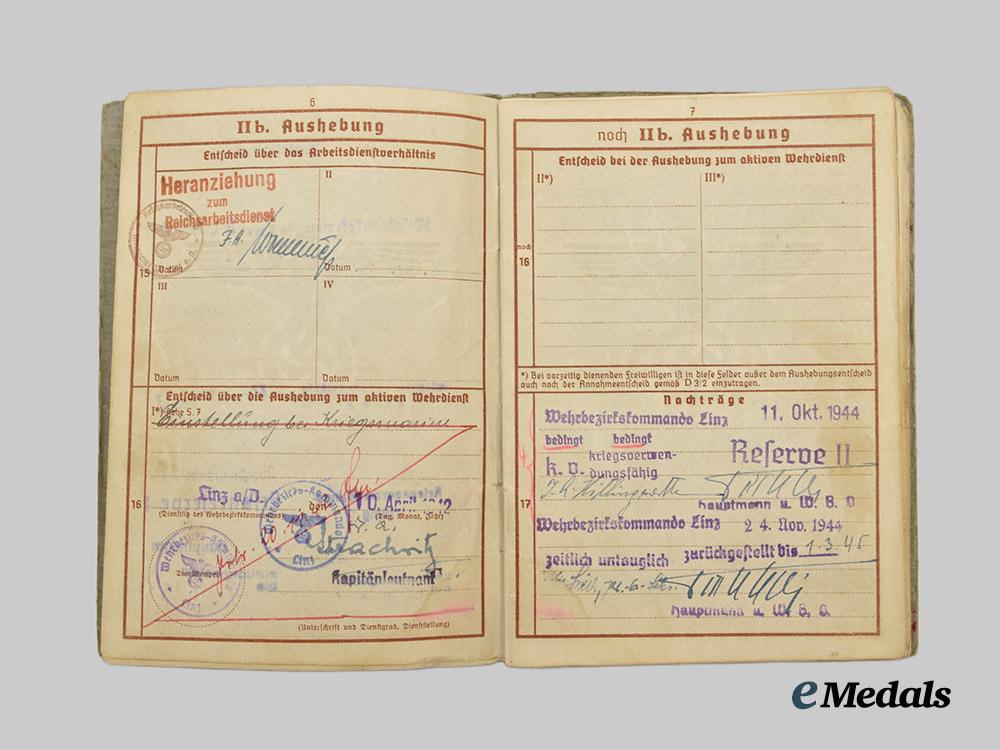 6
IIb. Aushebung
Entscheid über das Arbeitsdienstverhältnis
Heranziehung
zum
Reichsarbeitsdienst
II
15
Datum
Datum
III
IV
Datum
Datum
Entscheid über die Aushebung zum aktiven Wehrdienst
I*) Siehe S. 7
Einstellung bei Kriegsmarine
16
Linz a/D.
den
10. April 1942
(Dienstsitz des Wehrbezirkskommandos)
(Tag, Monat, Jahr)
Wehrbezirks-Kommando
Linz
Strachwitz
Kapitänleutnant
Dienststempel
Linz
(Unterschrift und Dienstgrad, Dienststellung)
7
noch IIb. Aushebung
Entscheid bei der Aushebung zum aktiven Wehrdienst
II*)
III*)
noch
16
*) Bei vorzeitig dienenden Freiwilligen ist in diese Felder außer dem Aushebungsentscheid
auch noch der Annahmeentscheid gemäß D 3/2 einzutragen.
Nachträge
Wehrbezirkskommando Linz 11. Okt. 1944
bedingt bedingt
kriegsverwen-
k. v. dungsfähig
Reserve II
17
Hauptmann u. W. B. O
Wehrbezirkskommando Linz 24. Nov. 1944
zeitlich untauglich zurückgestellt bis 1.3.45
Hauptmann u. W. B. O.
eMedals